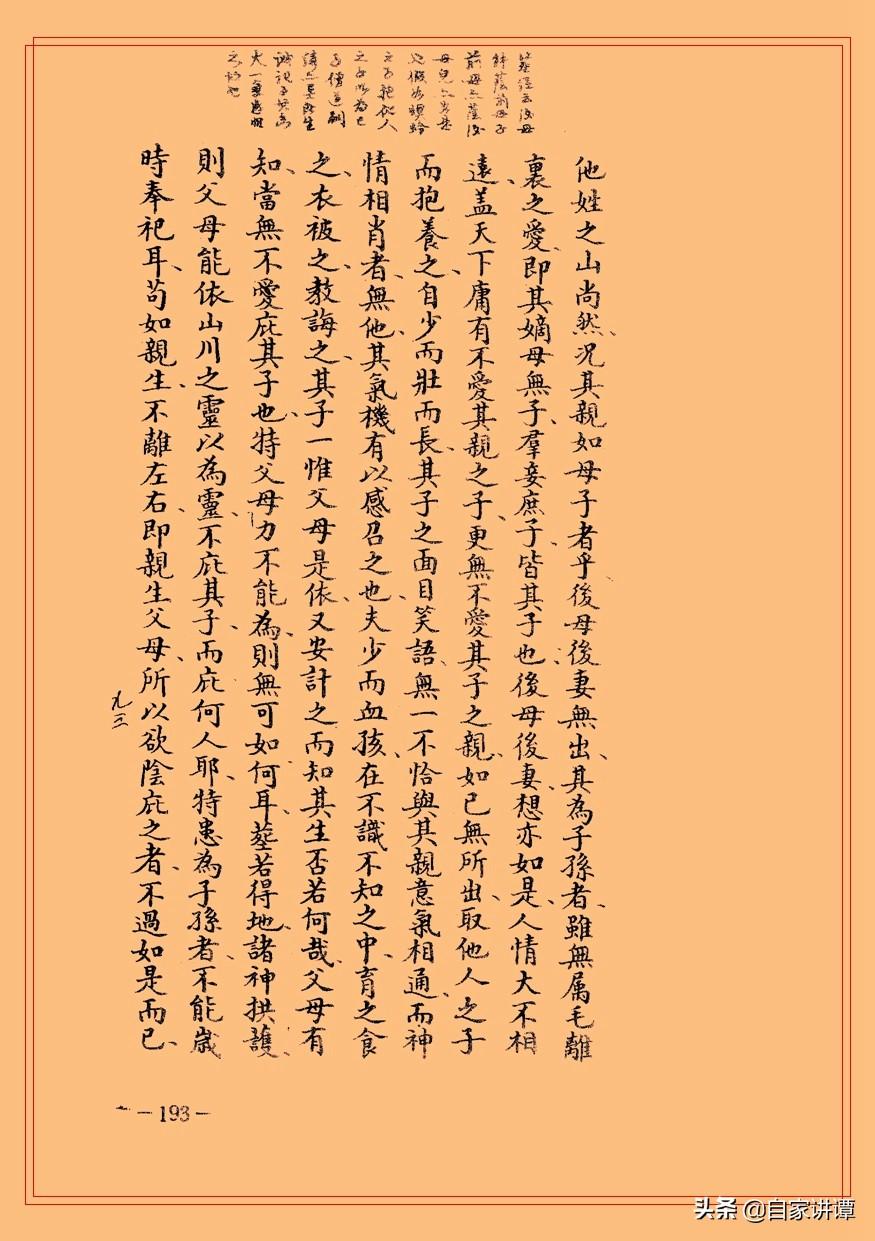 葬經云後母
蔭前母子
前母亦蔭後
母兒
螟蛉
他姓之山尚然、况其親如母子者乎後母後妻無出、其為子孫者、雖無属毛離
裏之愛、即其嫡母無子、羣妾庶子、皆其子也、後母後妻、想亦如是、人情大不相
遠、盖天下庸有不愛其親之子、更無不愛其子之親、如已無所出、取他人之子
而抱養之、自少而壯而長、其子之面目笑語、無一不恰與其親意氣相通、而神
情相肖者、無他、其氣機有以感召之也、夫少而血孩、在不識不知之中、育之食
之、衣被之、教誨之、其子一惟父母是依、又安計之而知其生否若何哉、父母有
知、當無不愛庇其子也、特父母力不能為、則無可如何耳、塟若得地、諸神拱護、
則父母能依山川之靈以為靈、不庇其子、而庇何人耶、特患為子孫者、不能歲
時奉祀耳、苟如親生、不離左右、即親生父母、所以欲陰庇之者、不過如是而已、
九三
—193—
头条 @自家讲谭